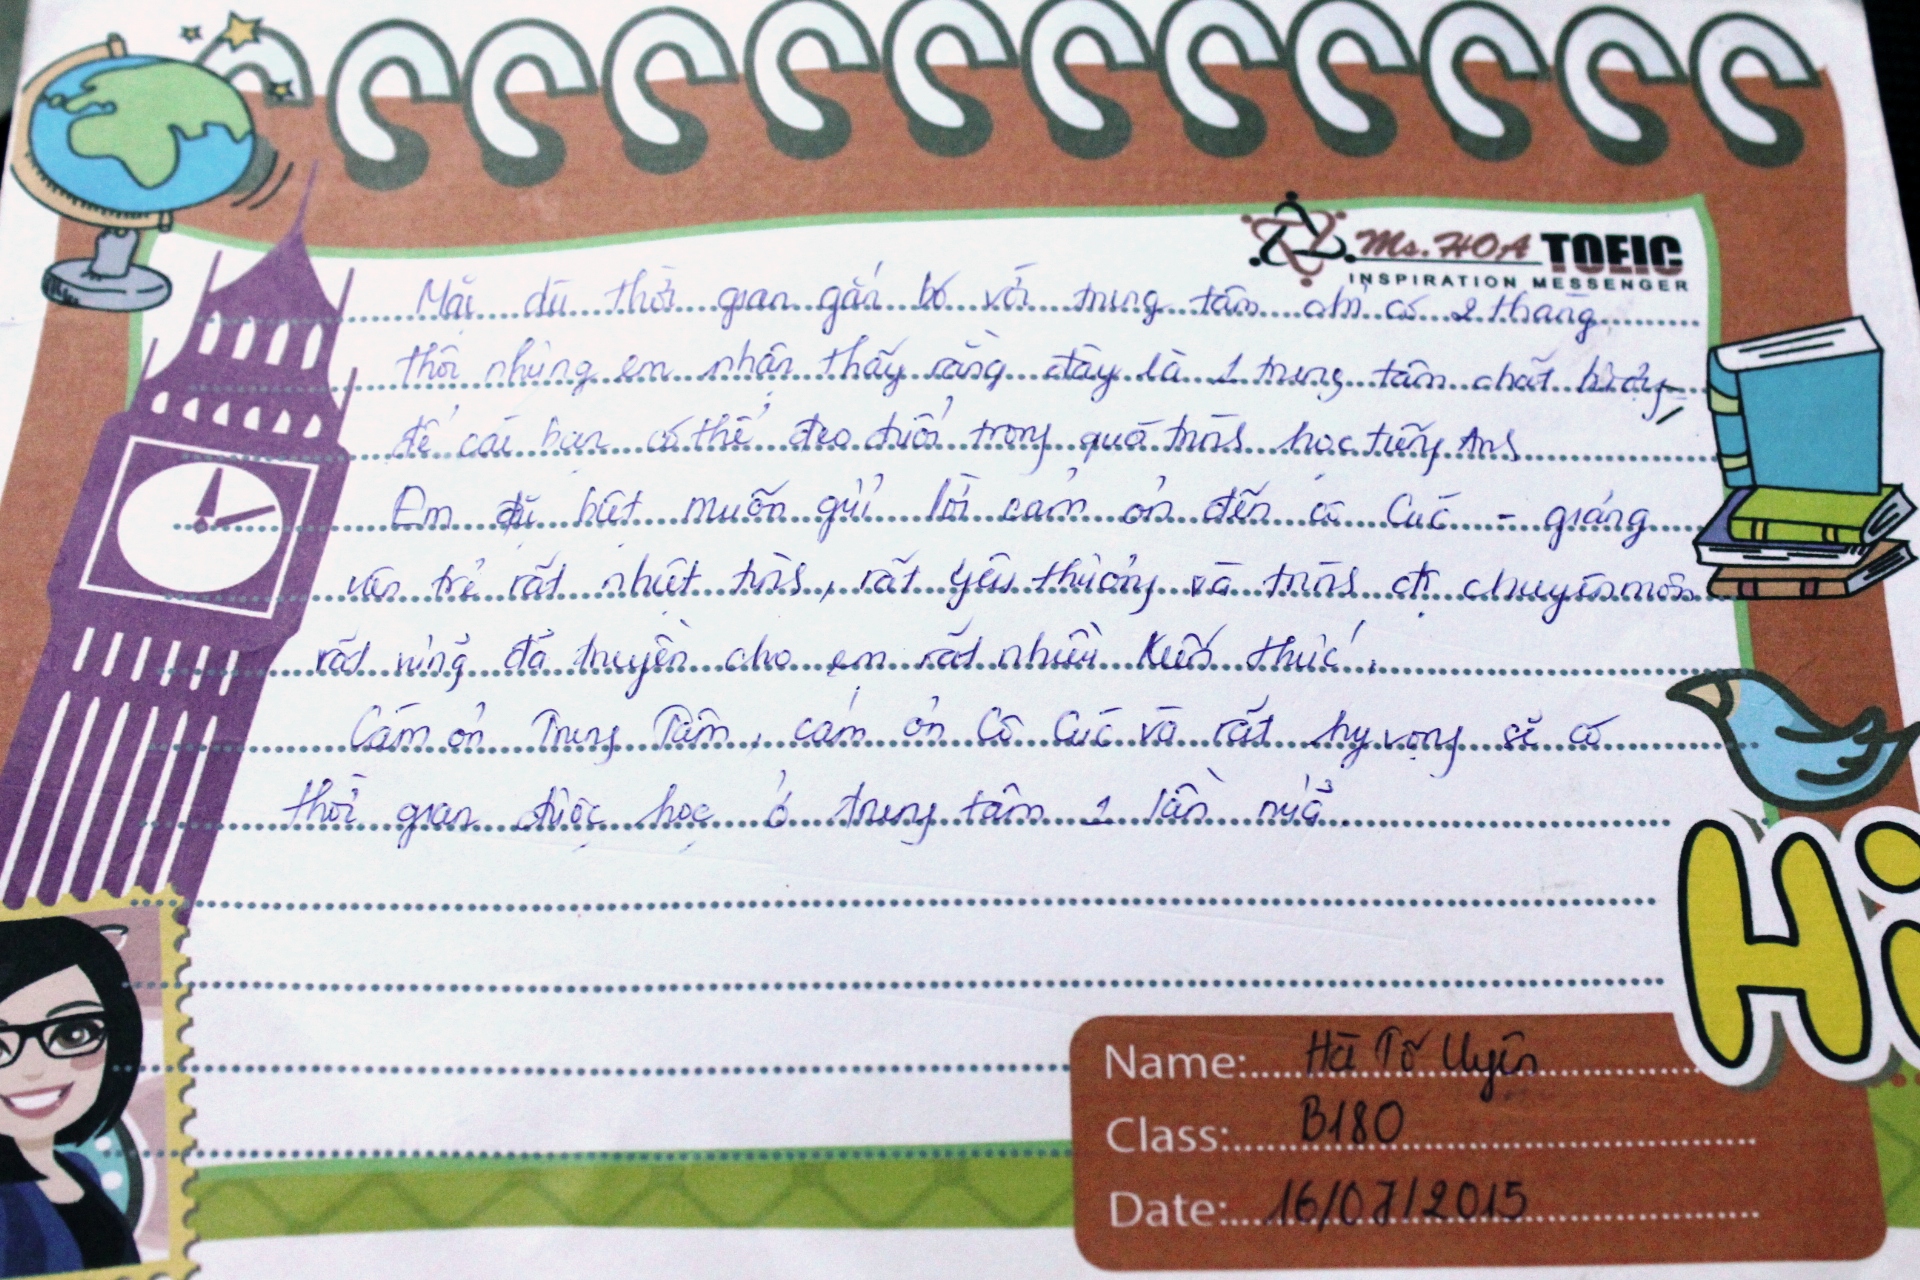 Ms. HOA TOEIC
INSPIRATION MESSENGER
Mặc dù thời gian gắn bó với trung tâm chỉ có 2 tháng
thôi nhưng em nhận thấy rằng đây là 1 trung tâm chất lượng
để các bạn có thể đeo đuổi trong quá trình học tiếng Anh
Em đặc biệt muốn gửi lời cảm ơn đến cô Cúc - giảng
viên trẻ rất nhiệt tình, rất yêu thương và trình độ chuyên môn
rất vững đã truyền cho em rất nhiều kiến thức.
Cảm ơn Trung Tâm, cảm ơn Cô Cúc và rất hy vọng sẽ có
thời gian được học ở trung tâm 1 lần nữa.
Hi
Name: Hà Tố Uyên
Class: B180
Date: 16/07/2015